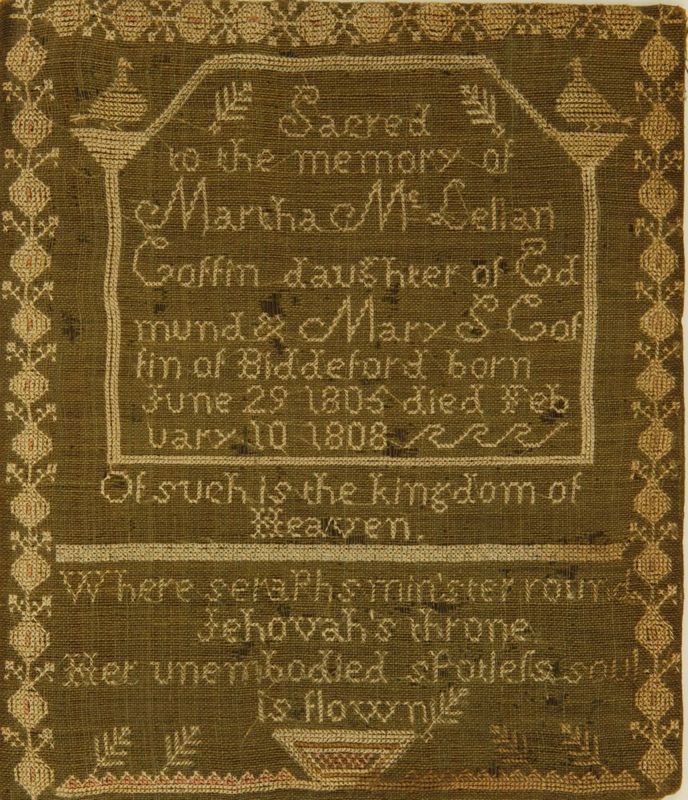 Sacred
to the memory of
Martha Mc Lellan
Coffin daughter of Ed
mund & Mary S Cof
fin of Biddeford born
June 29 1805 died Feb
uary 10 1808
Of such is the kingdom of
Heaven.
Where seraphs min'ster round
Jehovah's throne
Her unembodied spotless soul
is flown